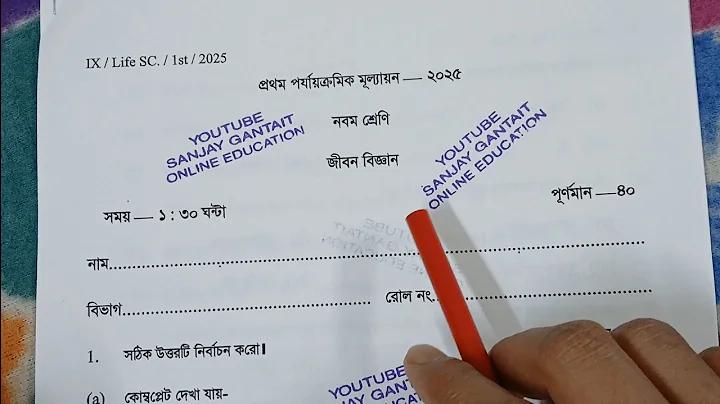 IX / Life SC. / 1st / 2025
প্রথম পর্যায়ক্রমিক মূল্যায়ন — ২০২৫
নবম শ্রেণি
YOUTUBE
SANJAY GANTAIT
ONLINE EDUCATION
YOUTUBE
SANJAY GANTAIT
ONLINE EDUCATION
জীবন বিজ্ঞান
সময় — ১ : ৩০ ঘন্টা
পূর্ণমান —৪০
নাম
বিভাগ
রোল নং
1. সঠিক উত্তরটি নির্বাচন করো।
(a) কোষপ্লেট দেখা যায়-
YOUTUBE